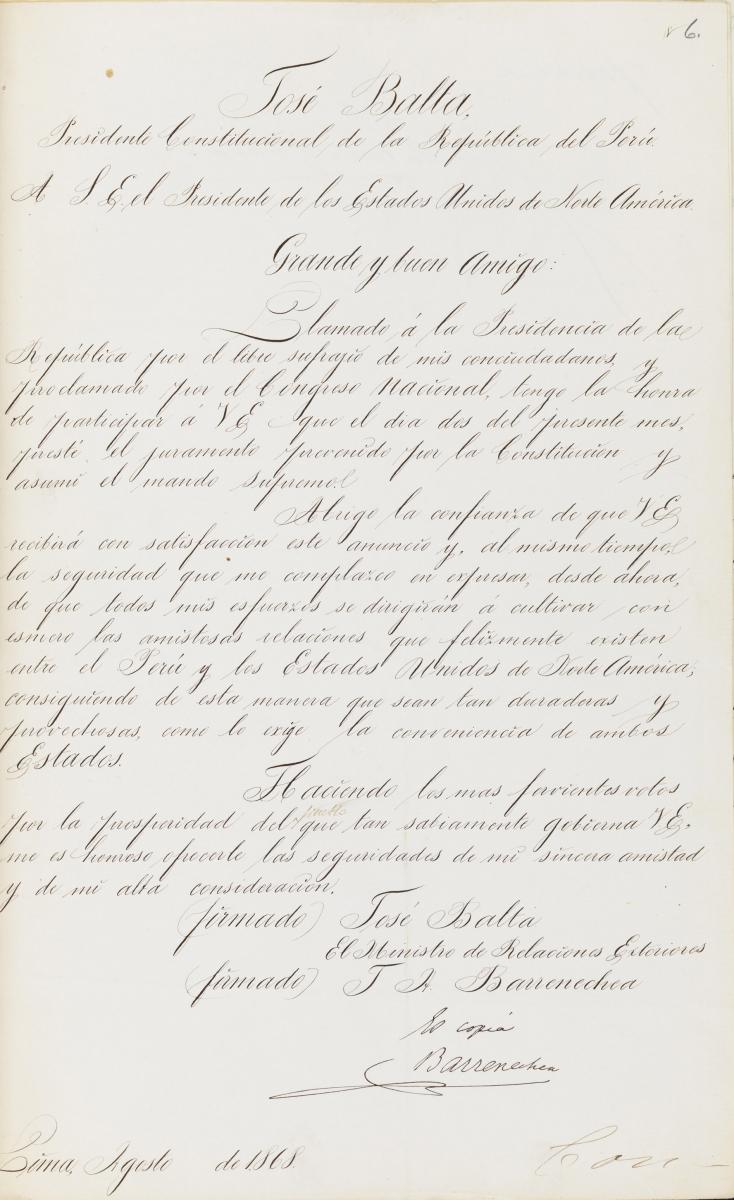 6.
José Balta,
Presidente Constitucional, de la República, del Perú.
A S. E. el Presidente de los Estados Unidos de Norte América.
Grande y buen Amigo:
Llamado á la Presidencia de la
República por el libre sufragio de mis conciudadanos, y
proclamado por el Congreso Nacional, tengo la honra
de participar á V E que el dia dos del presente mes,
presté el juramento prevenido por la Constitucion y
asumi el mando supremo.
Abrigo la confianza de que V E
recibirá con satisfaccion este anuncio y, al mismo tiempo,
la seguridad que me complazco en expresar, desde ahora,
de que todos mis esfuerzos se dirigirán á cultivar con
esmero las amistosas relaciones que felizmente existen
entre el Perú y los Estados Unidos de Norte América;
consiguiendo de esta manera que sean tan duraderas y
provechosas, como lo exije la conveniencia de ambos
Estados.
Haciendo los mas fervientes votos
por la prosperidad del pueblo que tan sabiamente gobierna V E,
me es honroso ofrecerle las seguridades de mi sincera amistad
y de mi alta consideracion.
(firmado) José Balta
El Ministro de Relaciones Exteriores
(firmado) J A. Barrenechea
Es copia
Barrenechea
Lima, Agosto de 1868.